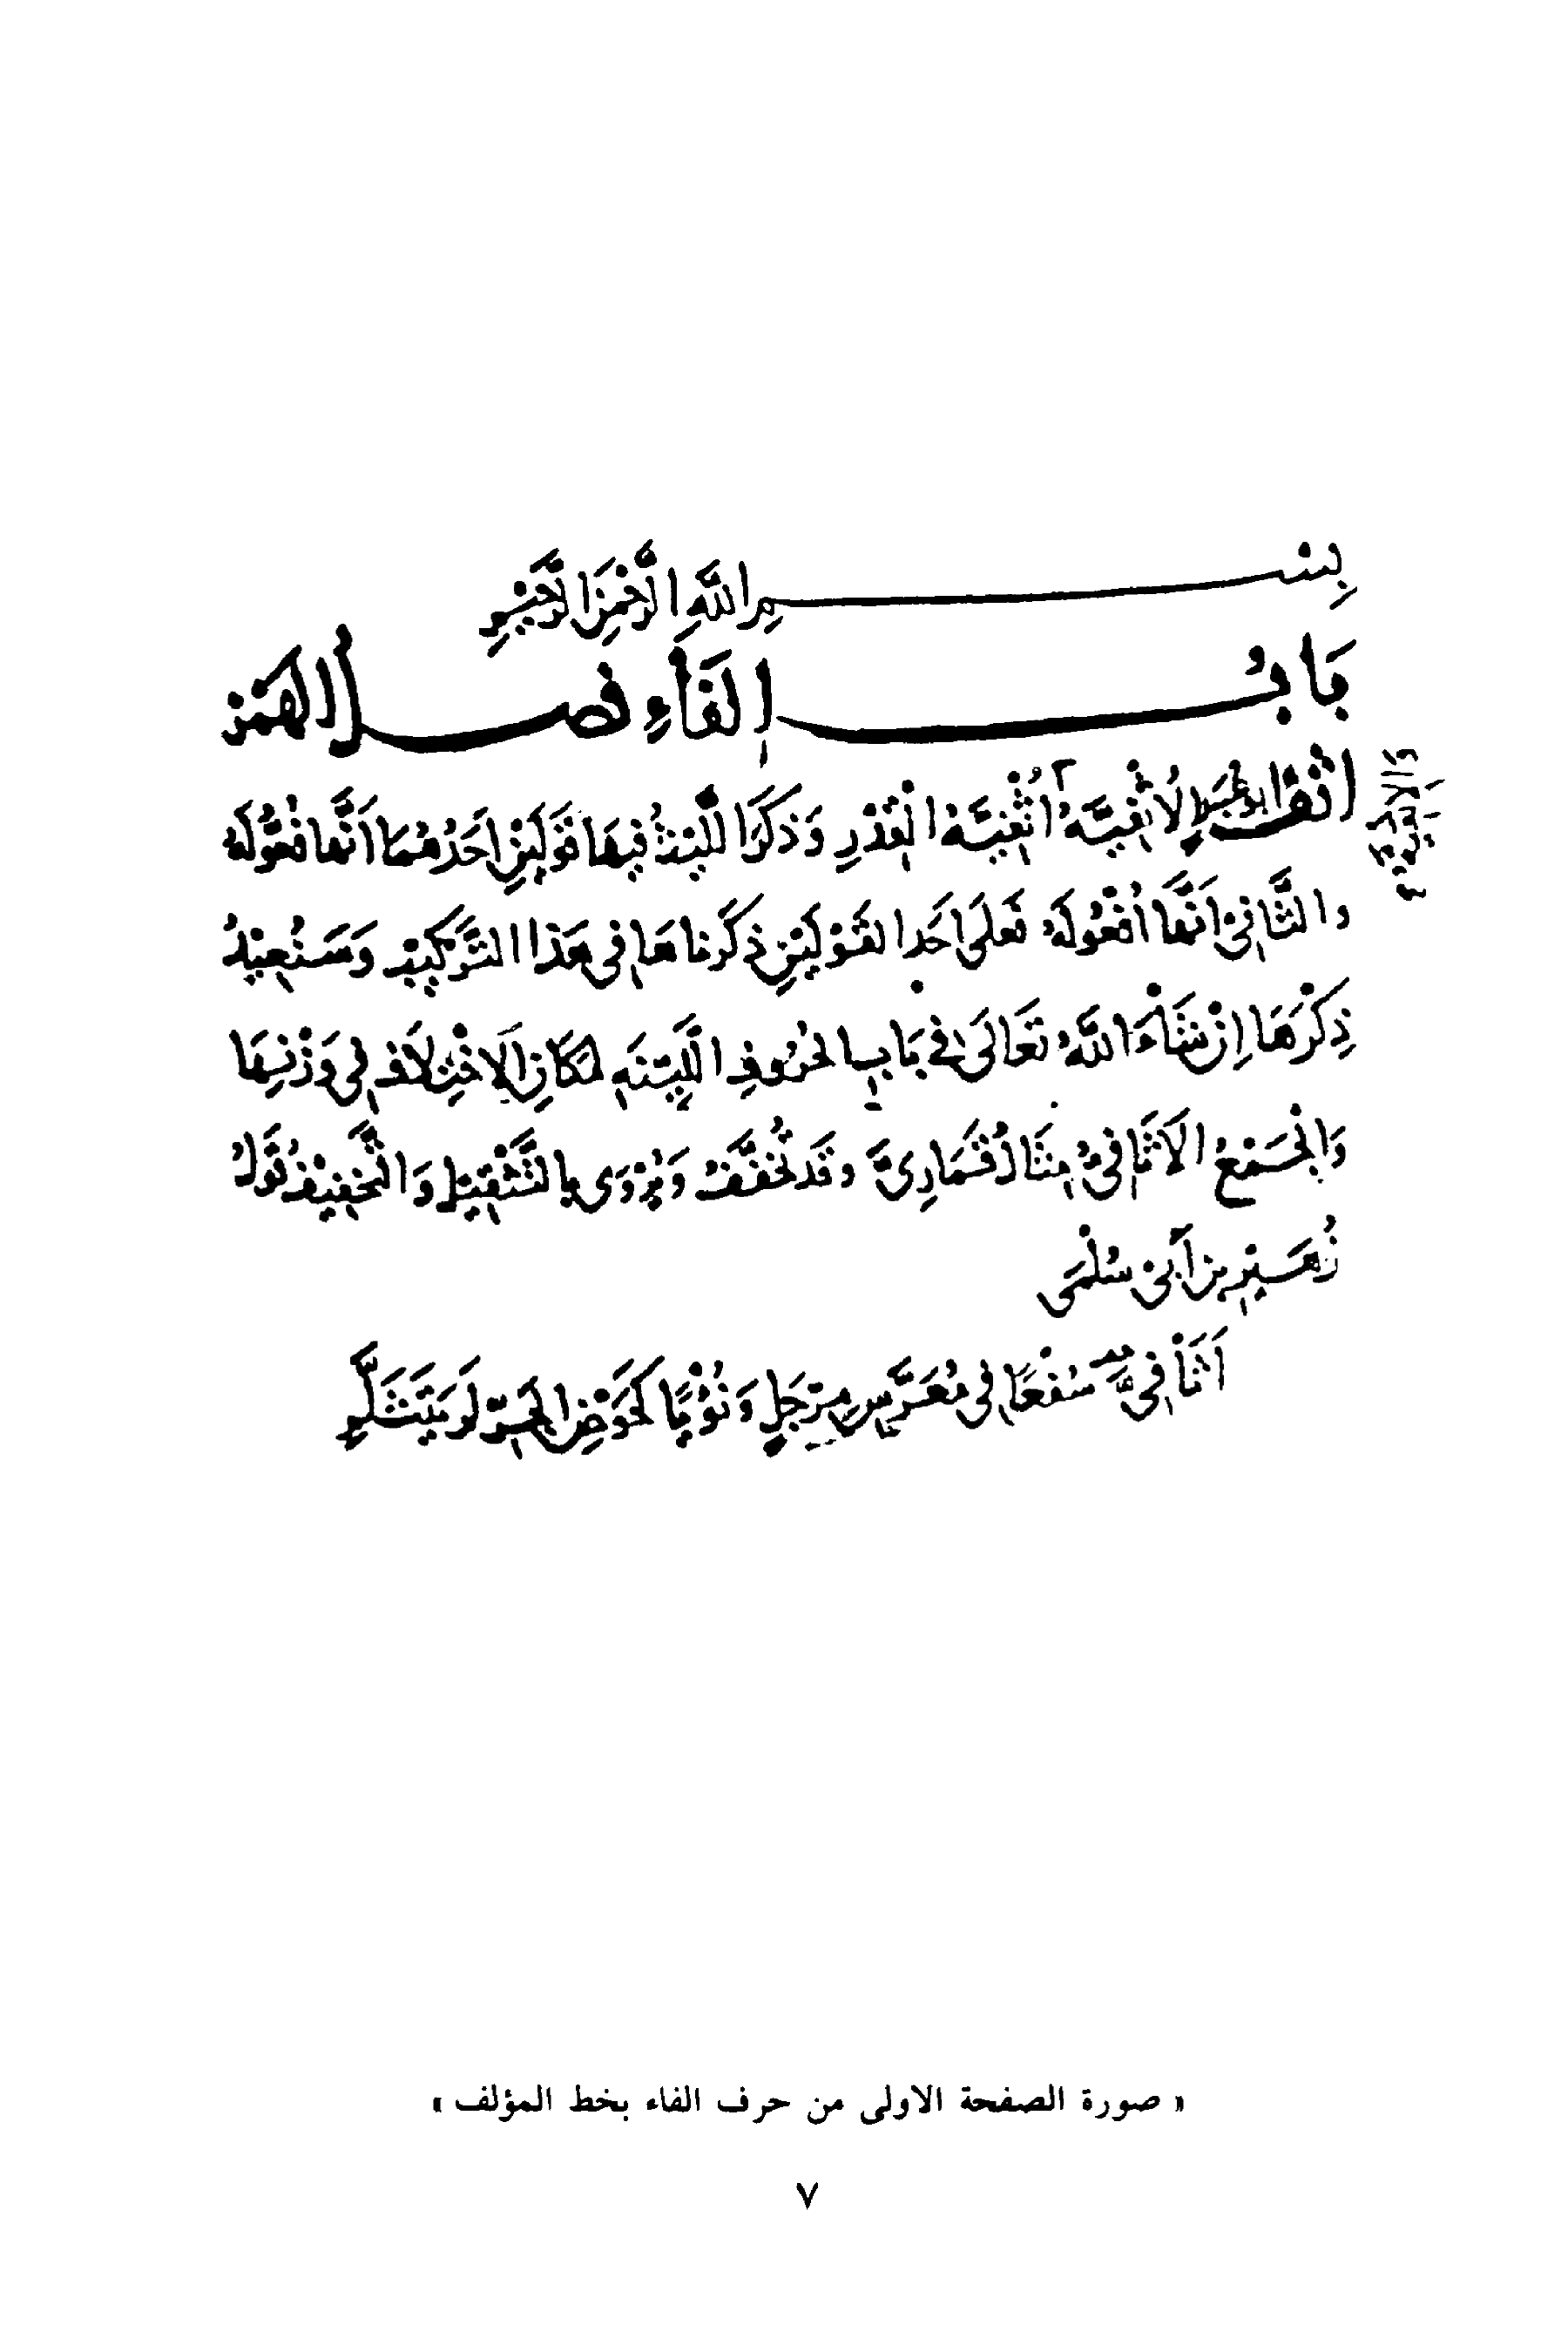 بِسْمِ اللّٰهِ الرَّحْمٰنِ الرَّحِيْمِ
بَابُ الفَاءِ فَصْلُ الهَمْزِ
اثف ابو عبيد الإِثْفِيَّةُ أُثْفِيَّةُ القِدْرِ وَذَكَرَ اللَّيْثُ فِيهَا قَوْلَيْنِ اَحَدُهُمَا اَنَّهَا فُعْلُوَّةٌ
والثَّانِيْ اَنَّهَا اُفْعُولَةٌ فَعَلَى اَحَدِ القَوْلَيْنِ ذَكَرْنَاهَا فِي هَذَا التَّرْكِيْبِ وَسَنُعِيْدُ
ذِكْرَهَا اِنْ شَاءَ اللّٰهُ تَعَالَى فِي بَابِ الحُرُوفِ اللَّيِّنَةِ لِمَكَانِ الِاخْتِلَافِ فِي وَزْنِهَا
وَالجَمْعُ الاَثَافِيُّ مِثَالُ قَمَارِيَّ وقَدْ تُخَفَّفُ وَيُرْوَى بِالتَّثْقِيْلِ وَالتَّخْفِيْفِ قَوْلُ
زُهَيْرِ بنِ اَبِيْ سُلْمَى
اَثَافِيَّ سُفْعًا فِي مُعَرَّسِ مِرْجَلٍ وَنُؤْيًا كَحَوْضِ الجُدِّ لَمْ يَتَثَلَّمِ
« صورة الصفحة الاولى من حرف الفاء بخط المؤلف »
٧